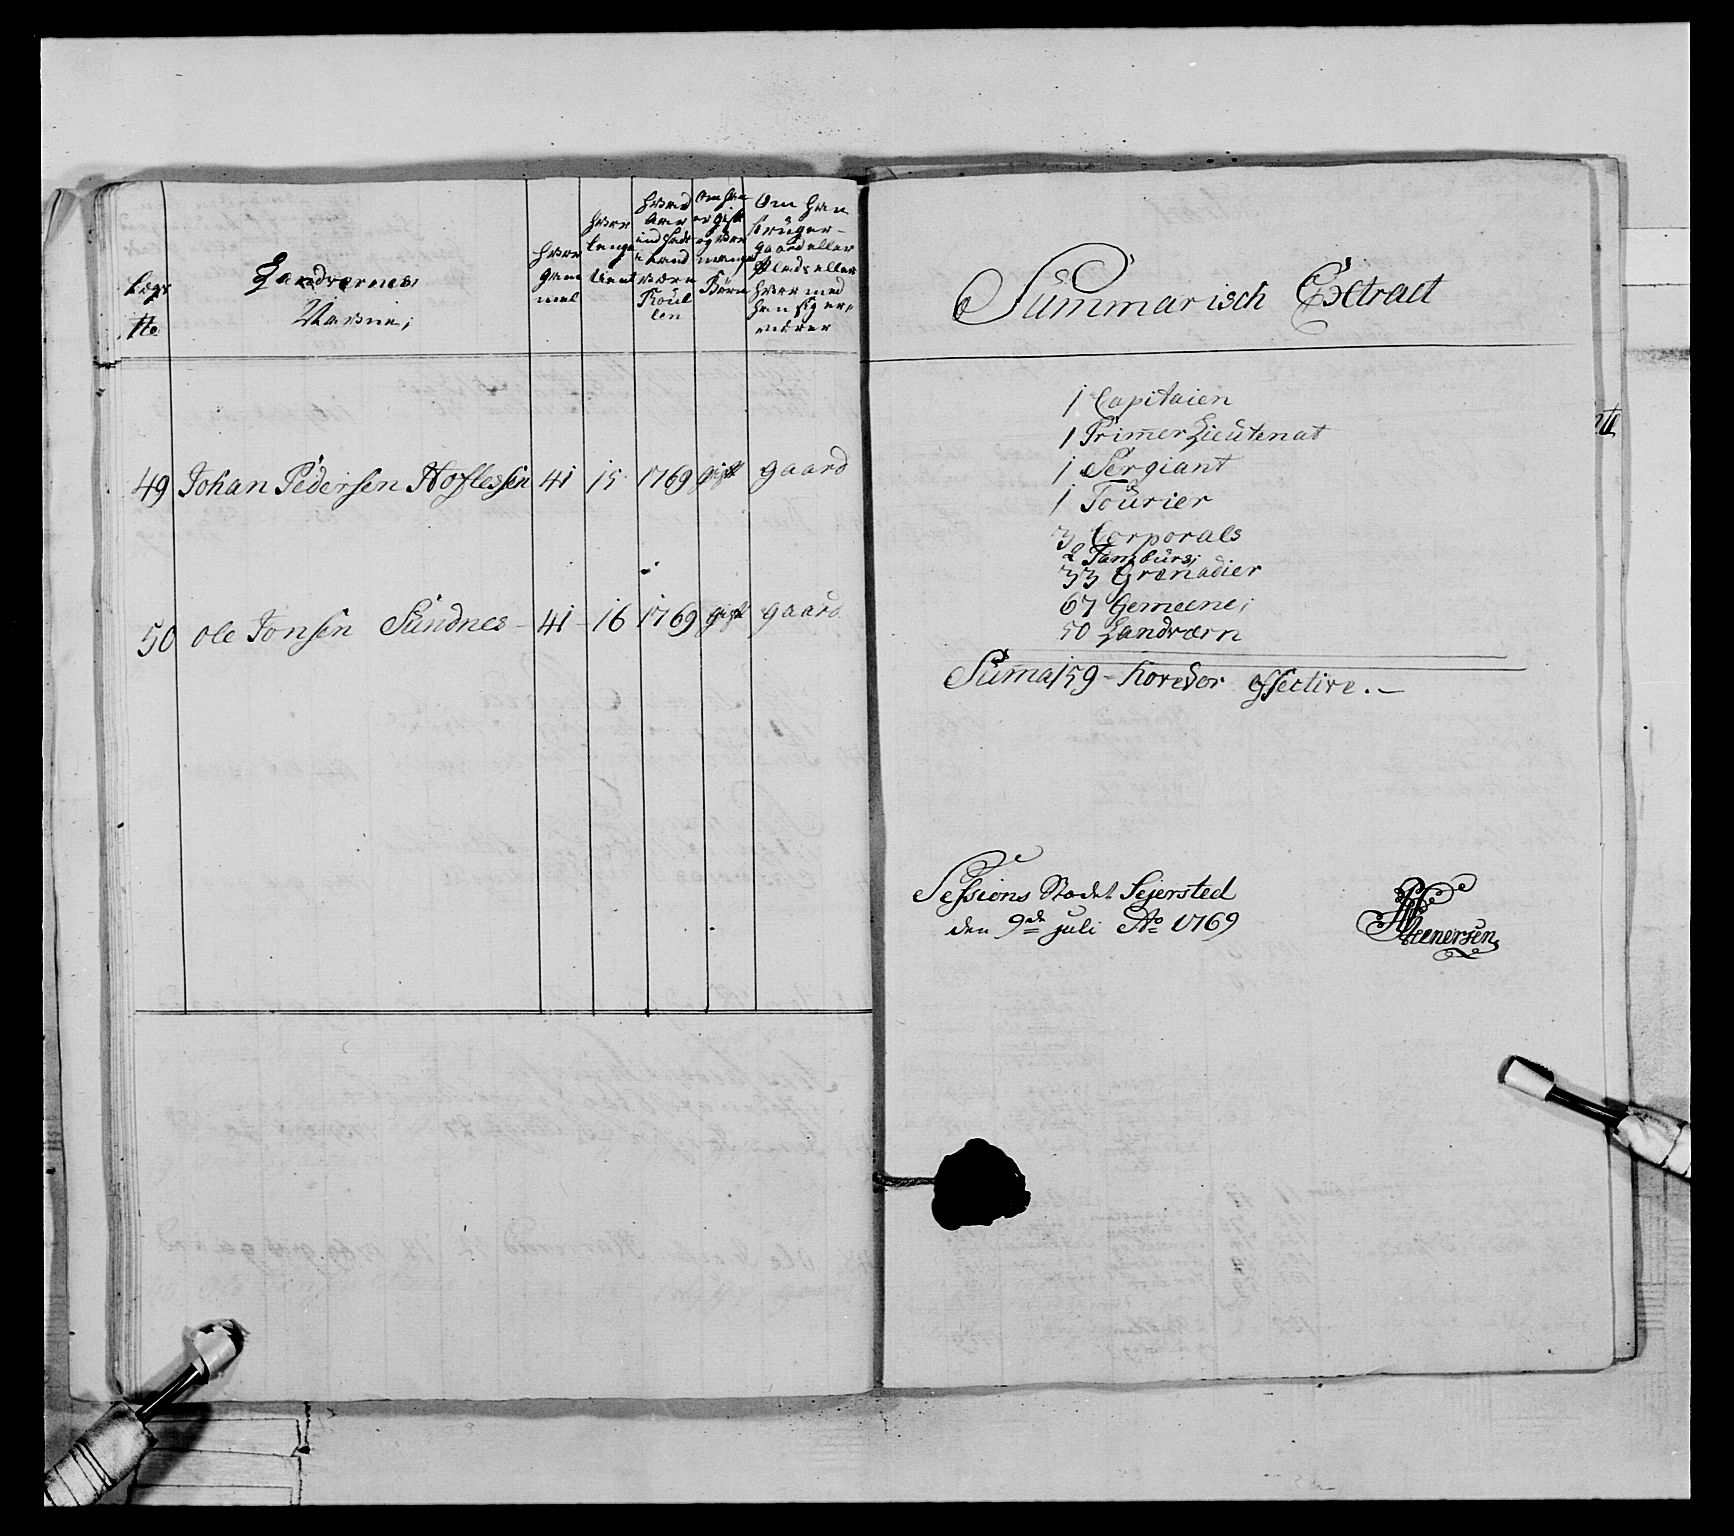 Legd
No
Landværnes
Navne;
hvor
gam
mel
hvor
lenge
tient
hvad
Aar
ind sadt
i Land
værn
Roul
len
Om han
er gift
og hvor
mange
Børn
Om han
bruger
gaard eller
Plads eller
hvor med
han sig er,
nærer
49 Johan Pedersen Hoflessen 41 15 1769 gift gaard
50 Ole Jonsen Sundnes - 41 - 16 1769 gift gaard
Summarisch Extract
1 Capitaien
1 Primer Lieutenat
1 Sergiant
1 Fourier
3 Corporals
2 Tambürs;
33 Grenadier
67 Gemeene;
50 Landværn
Suma 159 - hoveder effective. -
Sessions Stædet Sejersted
den 9de juli Ao 1769